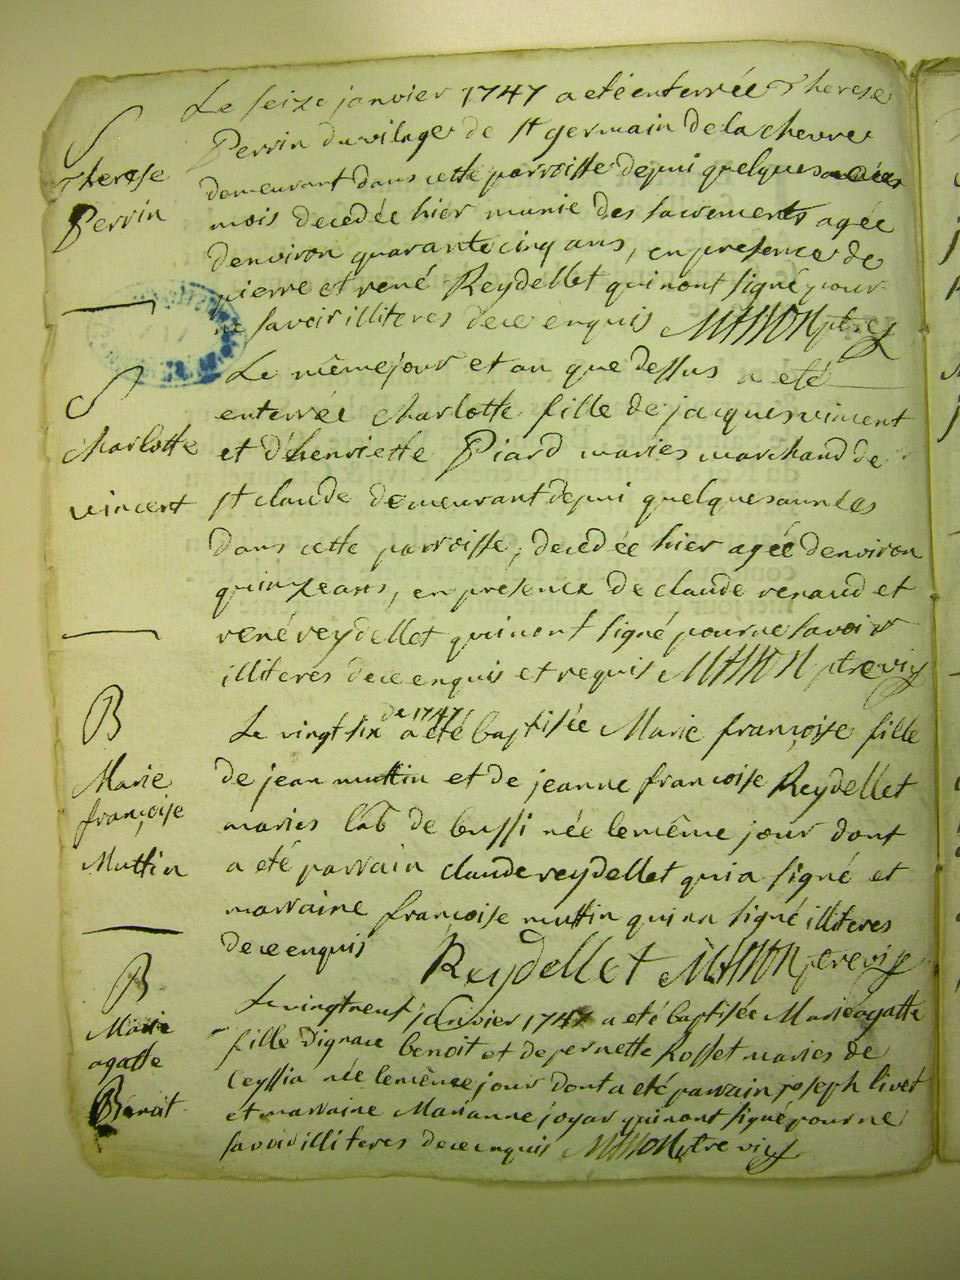 S
Therese
Perrin
Le seize janvier 1747 a eté enterrée Therese
Perrin du vilage de st germain de la chevre
demeurant dans cette parroisse depui quelques
mois decedée hier munie des sacrements agée
denviron quarante cinq ans, en presence de
pierre et rené Reydellet qui nont signé pour
ne savoir illiteres de ce enquis MASSON ptre
S
Charlotte
vincent
Le même jour et an que dessus a eté
enterrée charlotte fille de jacques vincent
et d'henriette Piard maries marchand de
st claude demeurant depui quelques années
dans cette parroisse, decedée hier agée denviron
quinze ans, en presence de claude renaud et
rené reydellet qui nont signé pour ne savoir
illiteres de ce enquis et requis MASSON ptre vic
B
Marie
françoise
Muttin
Le vingt six de 1747 a eté baptisée Marie françoise fille
de jean muttin et de jeanne francoise Reydellet
maries lab de bussi née le même jour dont
a eté parrain claude reydellet qui a signé et
marraine francoise muttin qui na signé illiteres
de ce enquis Reydellet MASSON
B
Marie
agatte
Benoit
Le vingt neuf janvier 1747 a eté baptisée Marie agatte
fille dignace benoit et de pernette Rosset maries de
Ceyssia née le même jour dont a eté parrain joseph livet
et marraine Marianne joyar qui nont signé pour ne
savoir illiteres de ce enquis MASSON ptre vic